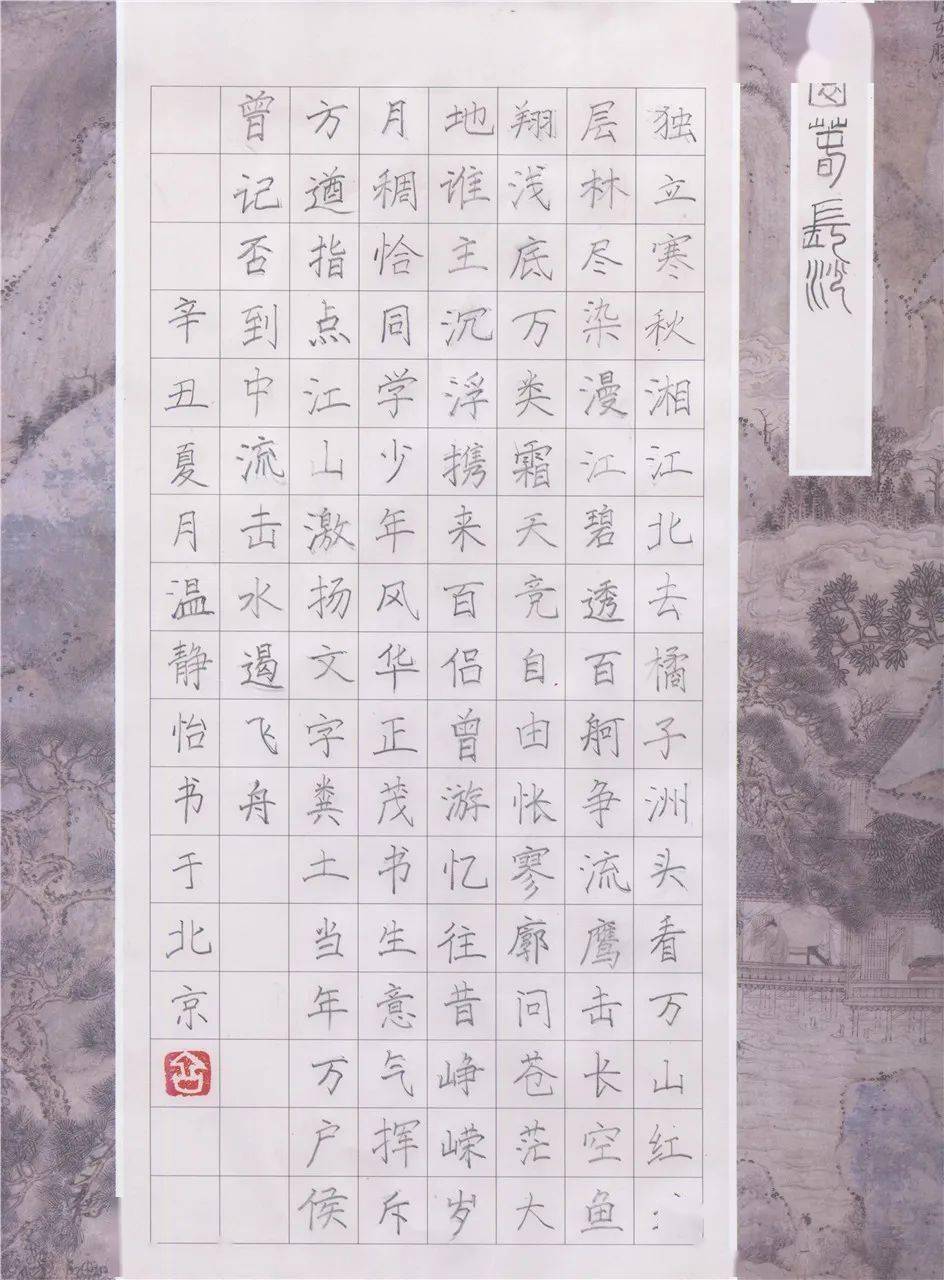 園春長沙
独立寒秋湘江北去橘子洲头看万山红
层林尽染漫江碧透百舸争流鹰击长空鱼
翔浅底万类霜天竞自由怅寥廓问苍茫大
地谁主沉浮携来百侣曾游忆往昔峥嵘岁
月稠恰同学少年风华正茂书生意气挥斥
方遒指点江山激扬文字粪土当年万户侯
曾记否到中流击水遏飞舟
辛丑夏月温静怡书于北京